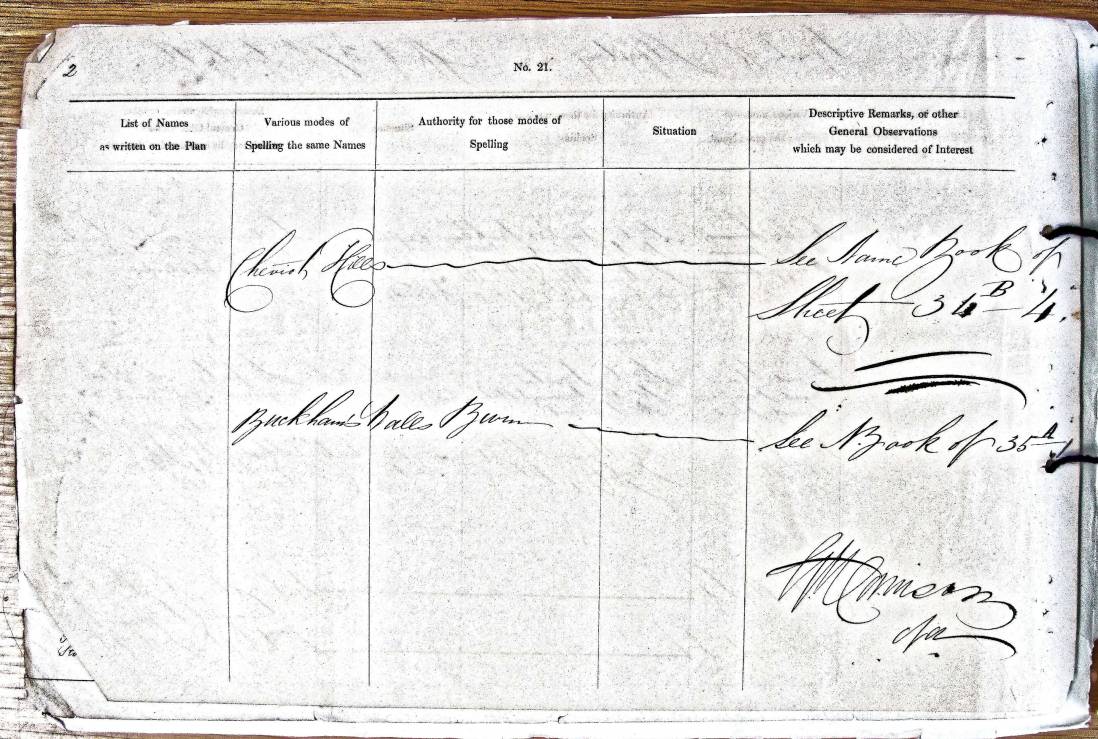 2
No. 21.
List of Names
as written on the Plan
Various modes of
Spelling the same Names
Authority for those modes of
Spelling
Situation
Descriptive Remarks, or other
General Observations
which may be considered of Interest
Cheviot Hills
See Name Book of
Sheet 34 B - 4.
Buckham's Walls Burn
See N. Book of 35 A